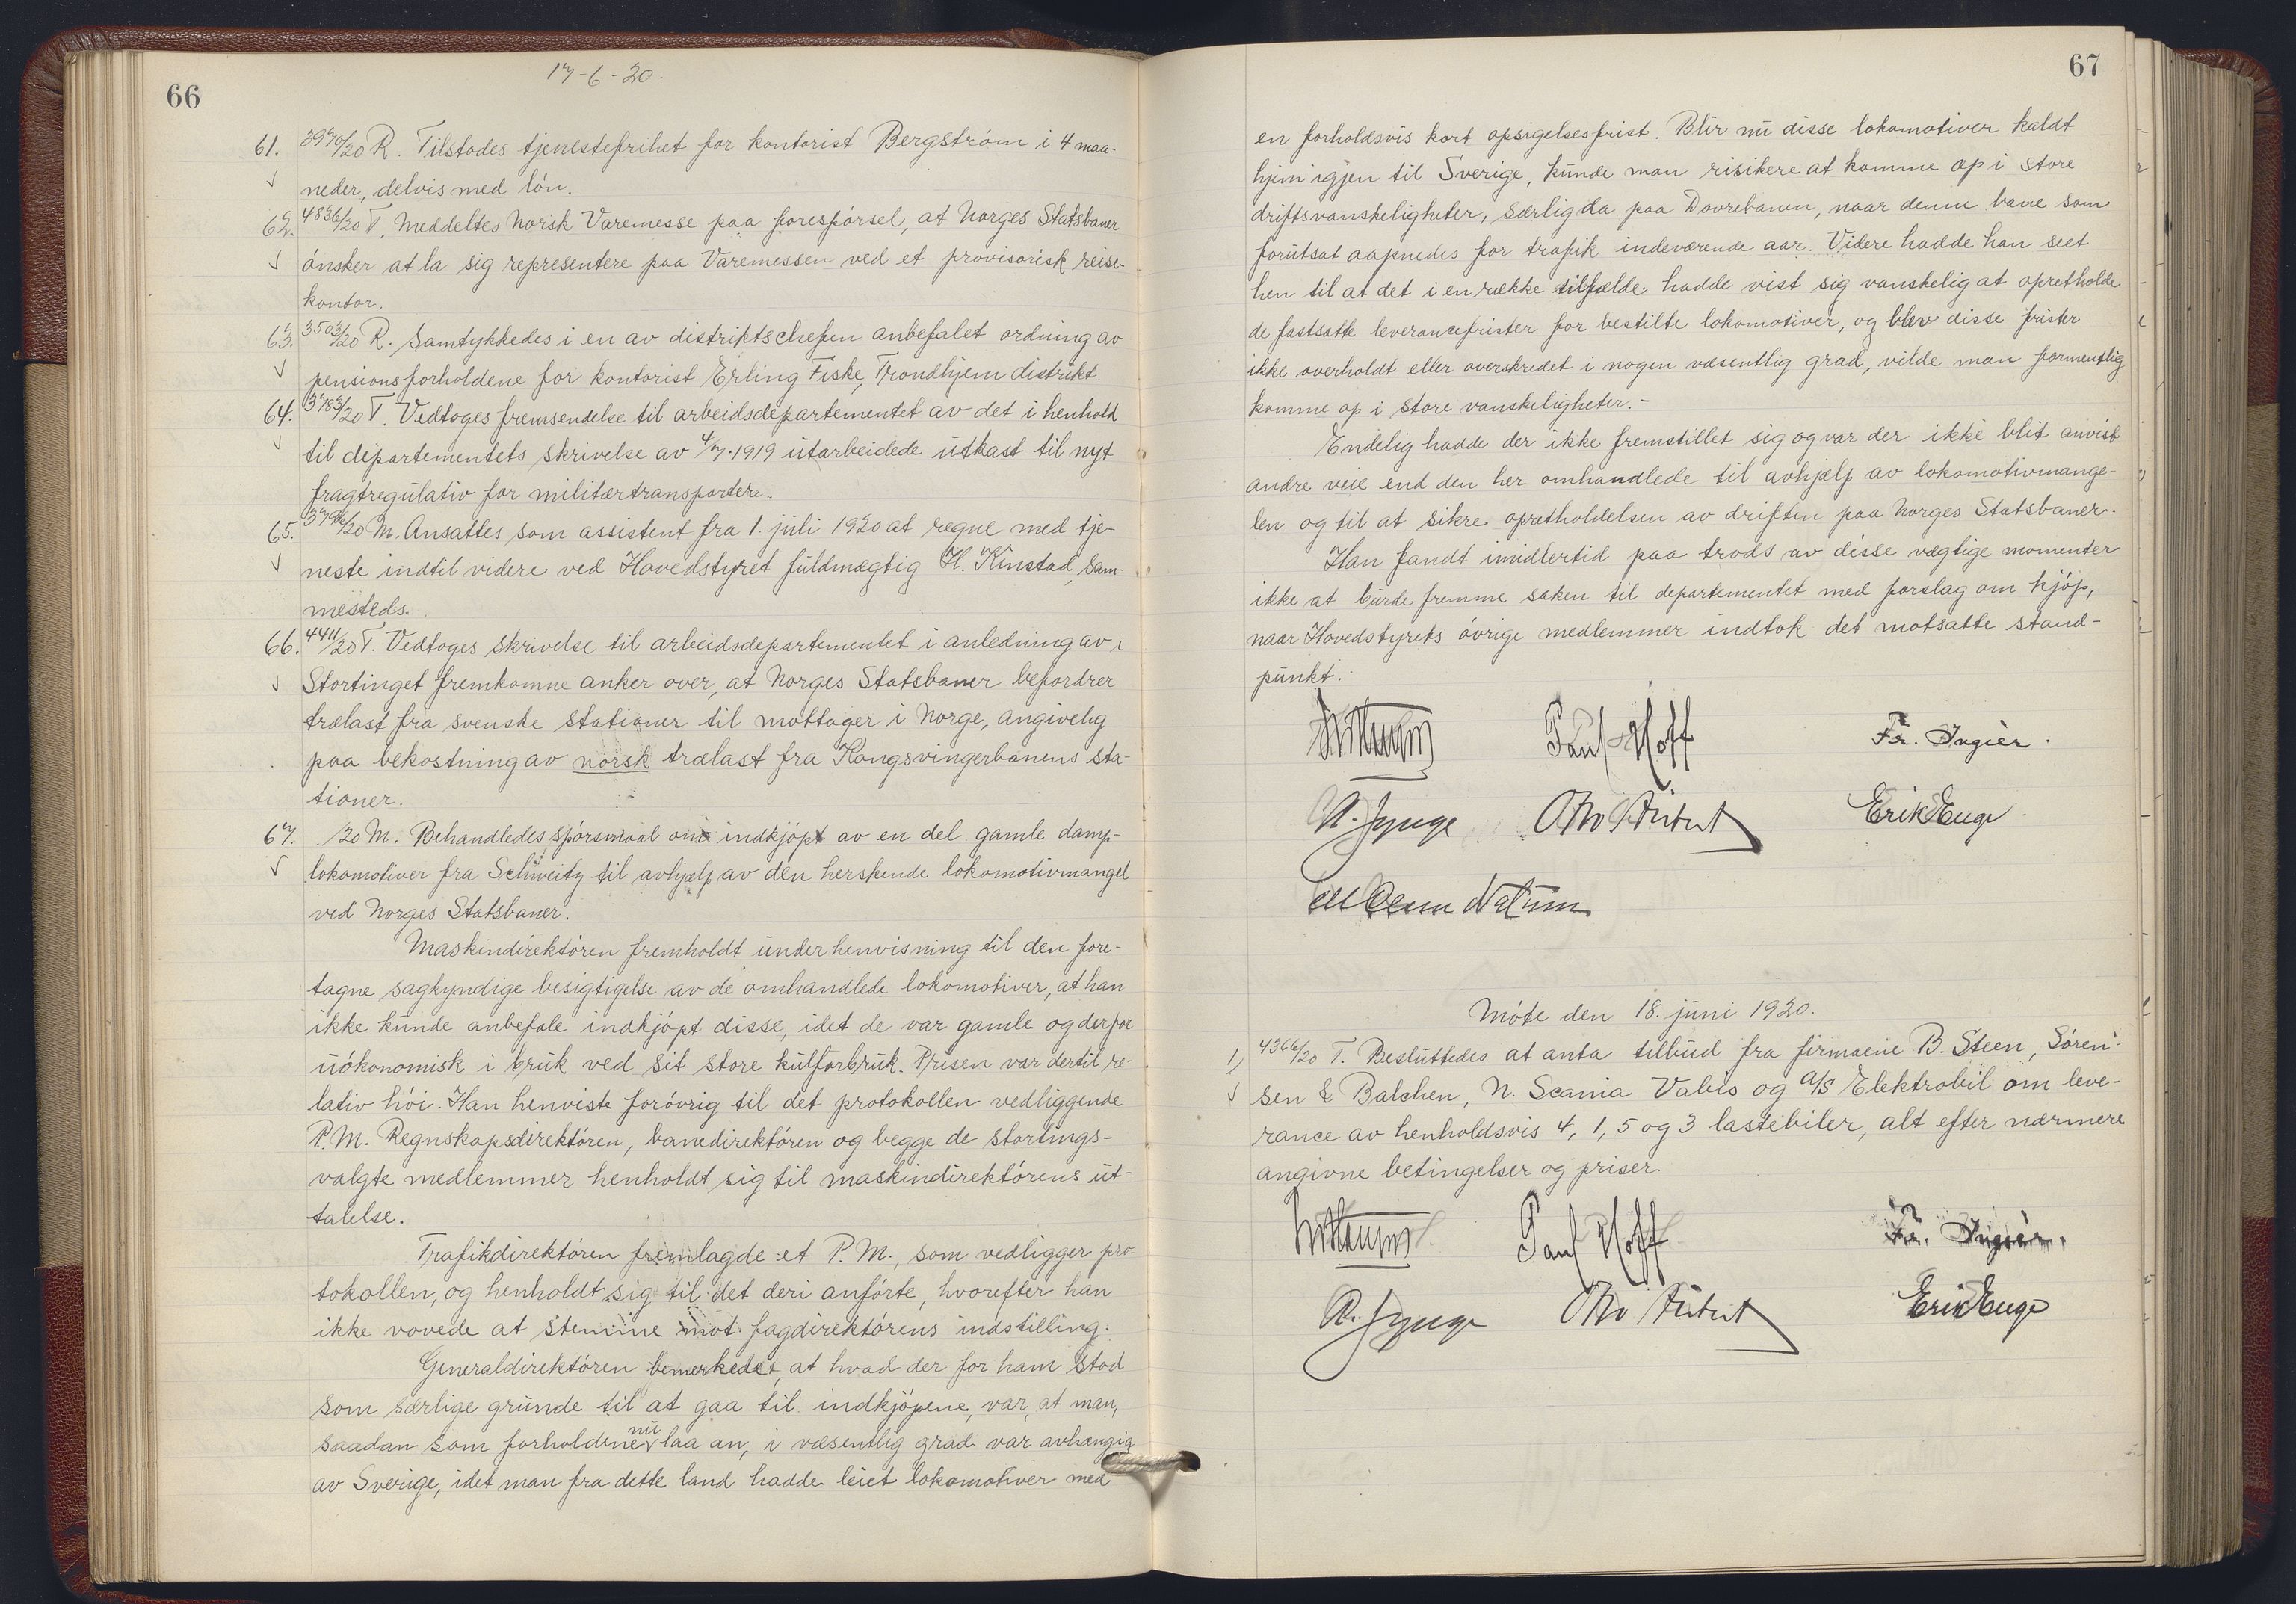 66
17-6-20.
61. 3970/20 R. Tilstodes tjenestefrihet for kontorist Bergström i 4 maa-
neder, delvis med lön.
62. 4836/20 T. Meddeltes Norsk Varemesse paa forespörsel, at Norges Statsbaner
önsker at la sig representere paa Varemessen ved et provisorisk reise-
kontor.
63. 3503/20 R. Samtykkedes i en av distriktschefen anbefalet ordning av
pensionsforholdene for kontorist Erling Fiske, Trondhjem distrikt.
64. 3783/20 T. Vedtoges fremsendelse til arbeidsdepartementet av det i henhold
til departementets skrivelse av 4/7-1919 utarbeidede utkast til nyt
fragtregulativ for militærtransporter.
65. 3796/20 M. Ansattes som assistent fra 1. juli 1920 at regne med tje-
neste indtil videre ved Hovedstyret fuldmægtig H. Kinstad, sam-
mesteds.
66. 4411/20 T. Vedtoges skrivelse til arbeidsdepartementet i anledning av i
Stortinget fremkomne anker over, at Norges Statsbaner befordrer
trælast fra svenske stationer til mottager i Norge, angivelig
paa bekostning av norsk trælast fra Kongsvingerbanens sta-
tioner.
67. /20 M. Behandledes spörsmaal om indkjöp av en del gamle damp-
lokomotiver fra Schweitz til avhjælp av den herskende lokomotivmangel
ved Norges Statsbaner.
Maskindirektören fremholdt under henvisning til den fore-
tagne sagkyndige besigtigelse av de omhandlede lokomotiver, at han
ikke kunde anbefale indkjöpt disse, idet de var gamle og derfor
uökonomisk i bruk ved sit store kulforbruk. Prisen var dertil re-
lativ höi. Han henviste forövrig til det protokollen vedliggende
P.M. Regnskapsdirektören, banedirektören og begge de stortings-
valgte medlemmer henholdt sig til maskindirektörens ut-
talelse.
Trafikdirektören fremlagde et P.M., som vedligger pro-
tokollen, og henholdt sig til det deri anförte, hvorefter han
ikke vovede at stemme mot fagdirektörens indstilling.
Generaldirektören bemerkedet, at hvad der for ham stod
som særlige grunde til at gaa til indkjöpene, var, at man,
saadan som forholdene nu laa an, i væsentlig grad var avhængig
av Sverige, idet man fra dette land hadde leiet lokomotiver med
67
en forholdsvis kort opsigelsesfrist. Blir nu disse lokomotiver kaldt
hjem igjen til Sverige, kunde man risikere at komme op i store
driftsvanskeligheter, særlig da paa Dovrebanen, naar denne bane som
forutsat aapnedes for trafik indeværende aar. Videre hadde han seet
hen til at det i en række tilfælde hadde vist sig vanskelig at opretholde
de fastsatte leverancefrister for bestilte lokomotiver, og blev disse frister
ikke overholdt eller overskredet i nogen væsentlig grad, vilde man formentlig
komme op i store vanskeligheter.-
Endelig hadde der ikke fremstillet sig og var der ikke blit anvist
andre veie end den her omhandlede til avhjælp av lokomotivmange-
len og til at sikre opretholdelsen av driften paa Norges Statsbaner.
Han fandt imidlertid paa trods av disse vægtige momenter
ikke at burde fremme saken til departementet med forslag om kjöp,
naar Hovedstyrets övrige medlemmer indtok det motsatte stand-
punkt.
Paul Hoff Fr. Ingier.
Erik Enge
Möte den 18. juni 1920.
1, 4366/20 T. Besluttedes at anta tilbud fra firmaene B. Steen, Sören-
sen & Balchen, N. Scania Vabis og A/S Elektrobil om leve-
rance av henholdsvis 4, 1, 5 og 3 lastebiler, alt efter nærmere
angivne betingelser og priser.
Paul Hoff Fr. Ingier.
Erik Enge